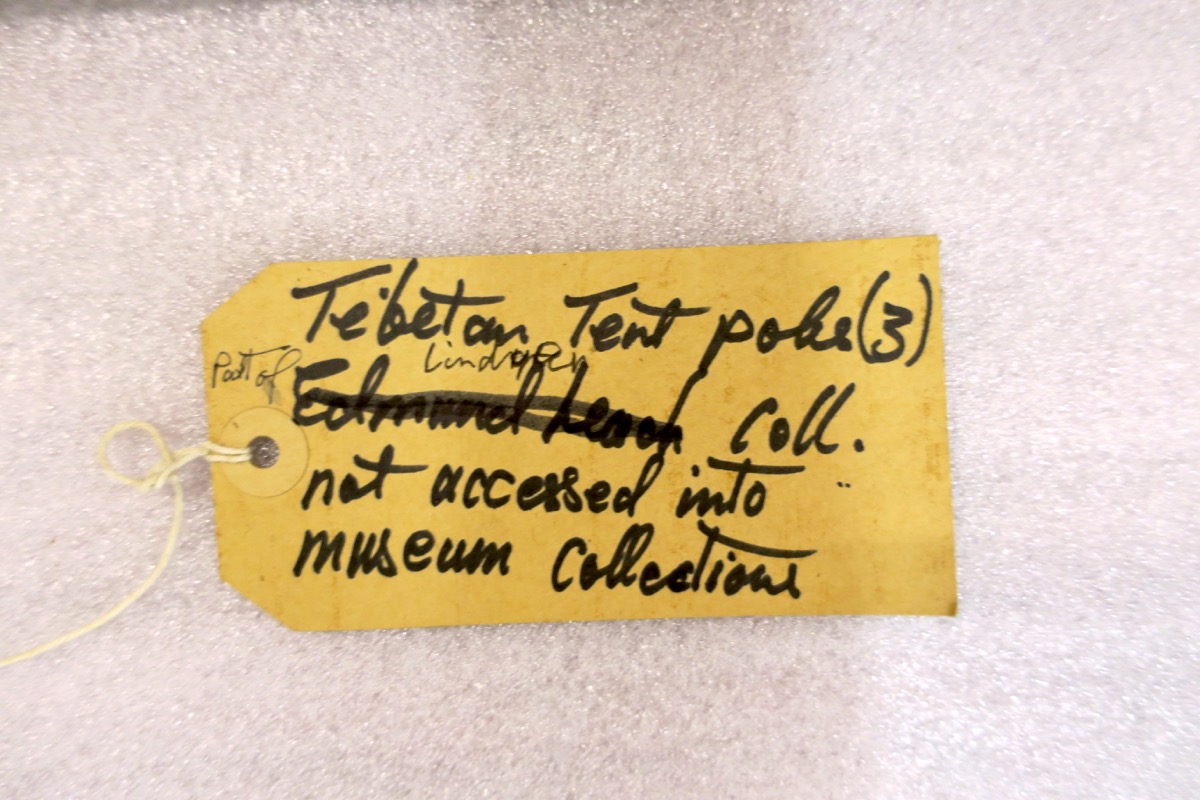 Tibetan Tent poles (3)
Part of Lindgren
Edmund Leach Coll.
not accessed into
museum Collections